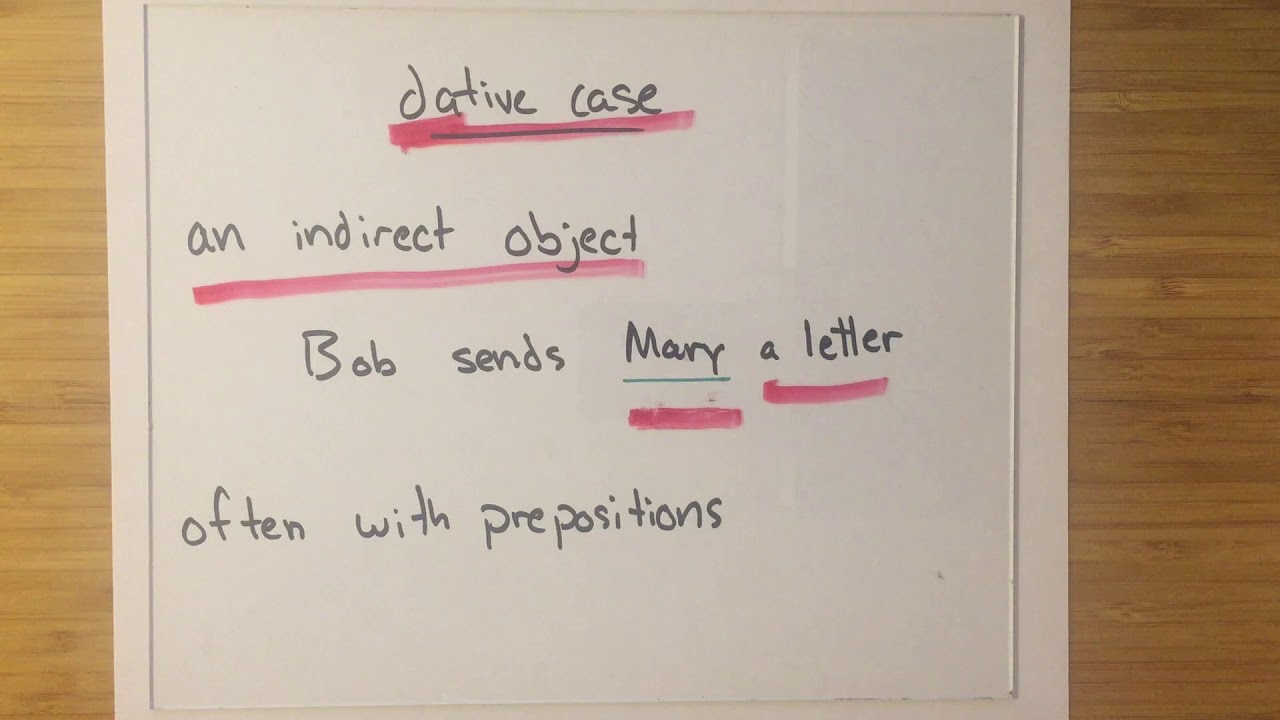 dative case
an indirect object
Bob sends Mary a letter
often with prepositions